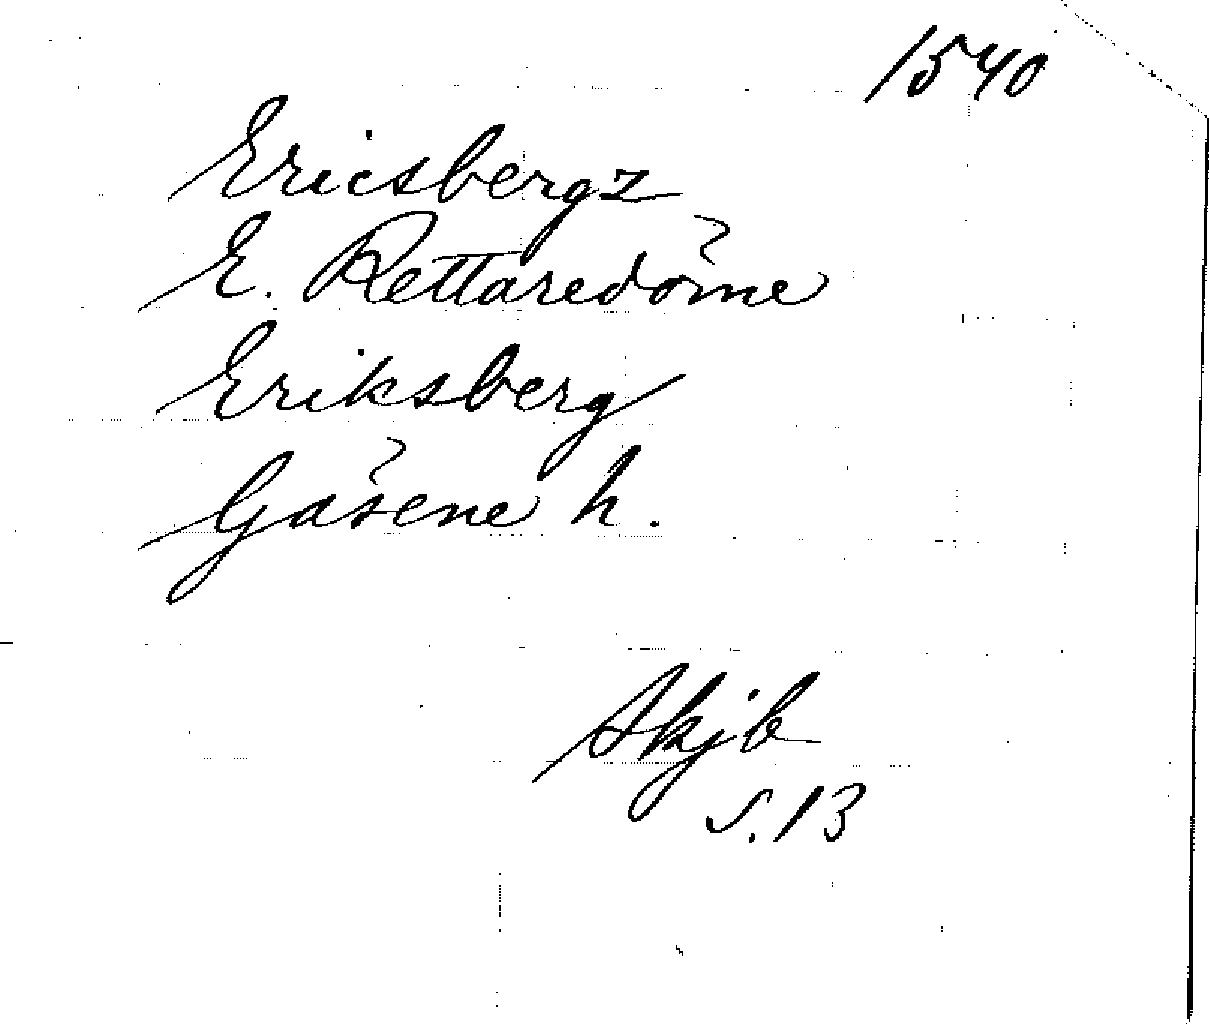 1540
Ericsbergz
E. Rettaredöme
Eriksberg
Gäsene h.
Skjb
S. 13